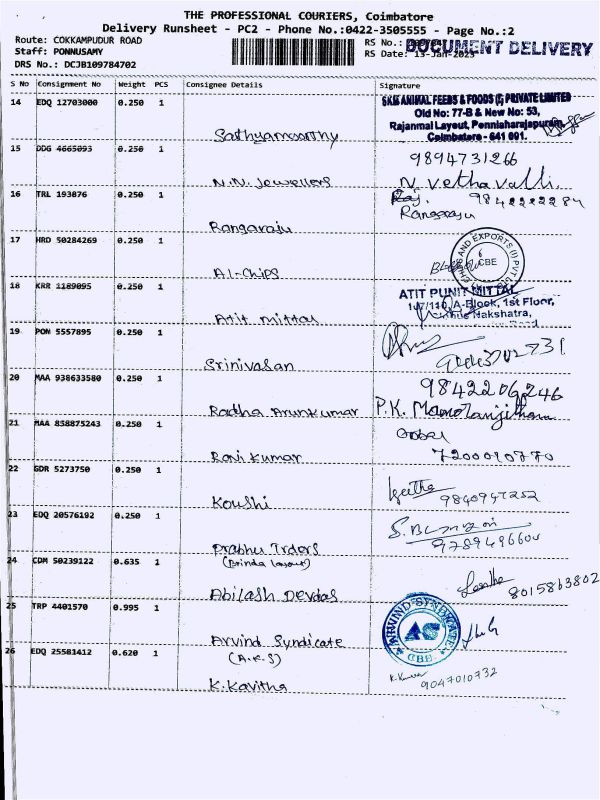 THE PROFESSIONAL COURIERS, Coimbatore
Delivery Runsheet - PC2 - Phone No.:0422-3505555 - Page No.:2
Route: COKKAMPUDUR ROAD
RS No.:
DOCUMENT DELIVERY
Staff: PONNUSAMY
RS Date: 13-Jan-2023
DRS No.: DCJB109784702
S No Consignment No Weight PCS Consignee Details Signature
14 EDQ 12703000 0.250 1 Sathyamoorthy
SKM ANIMAL FEEDS & FOODS (I) PRIVATE LIMITED
Old No: 77-B & New No: 53,
Rajanmal Layout, Penniaharajapuram,
Coimbatore - 641 001.
15 DDG 4665093 0.250 1 N.N. Jewellers
9894731266
N. Vethavalli
16 TRL 193876 0.250 1 Rangaraju
Raj. 9842222284
Rangaraju
17 HRD 50284269 0.250 1 Al-Chips
AND EXPORTS (I) PVT
CBE
18 KRR 1189095 0.250 1 Atit mittal
ATIT PUNIT MITTAL
107/110, A-Block, 1st Floor,
Nakshatra,
19 PON 5557895 0.250 1 Srinivasan
20 MAA 938633580 0.250 1 Radha Arunkumar
9842206246
P.K. Manoranjitham
21 MAA 858875243 0.250 1 Ravi kumar
7200010770
22 GDR 5273750 0.250 1 Koushi
Geetha 9840947252
23 EDQ 20576192 0.250 1 Prabhu Trders
(Brinda layout)
9789496600
24 CDM 50239122 0.635 1 Abilash Devdas
8015863802
25 TRP 4401570 0.995 1 Arvind Syndicate
(A.K.S)
ARWIND SYNDICATE
AS
CBE
26 EDQ 25581412 0.620 1 K.Kavitha
9047010732